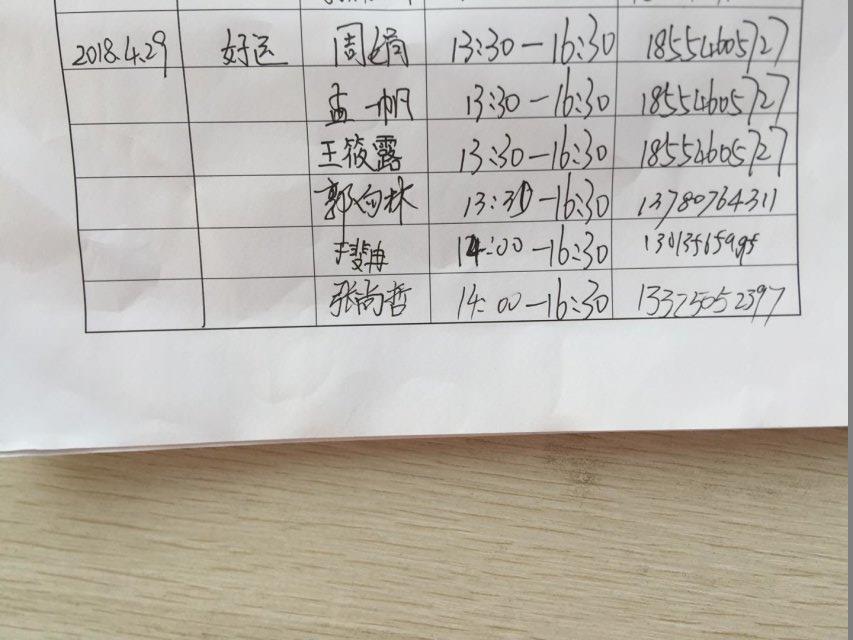 2018.4.29 好运 周娟 13:30-16:30 18554605727
孟一帆 13:30-16:30 18554605727
王筱露 13:30-16:30 18554605727
郭向林 13:30-16:30 13780764311
14:00-16:30
张尚哲 14:00-16:30 13325052397